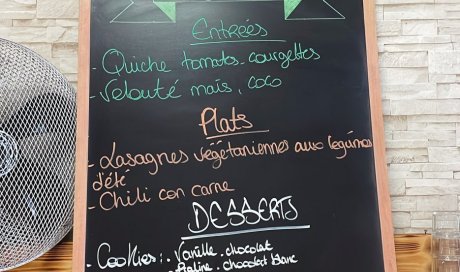 Entrées
- Quiche tomates-courgettes
- Velouté maïs, coco
Plats
- Lasagnes végétariennes aux légumes
d'été
- Chili con carne
DESSERTS
- Cookies: . Vanille . chocolat
. Praline . chocolat blanc